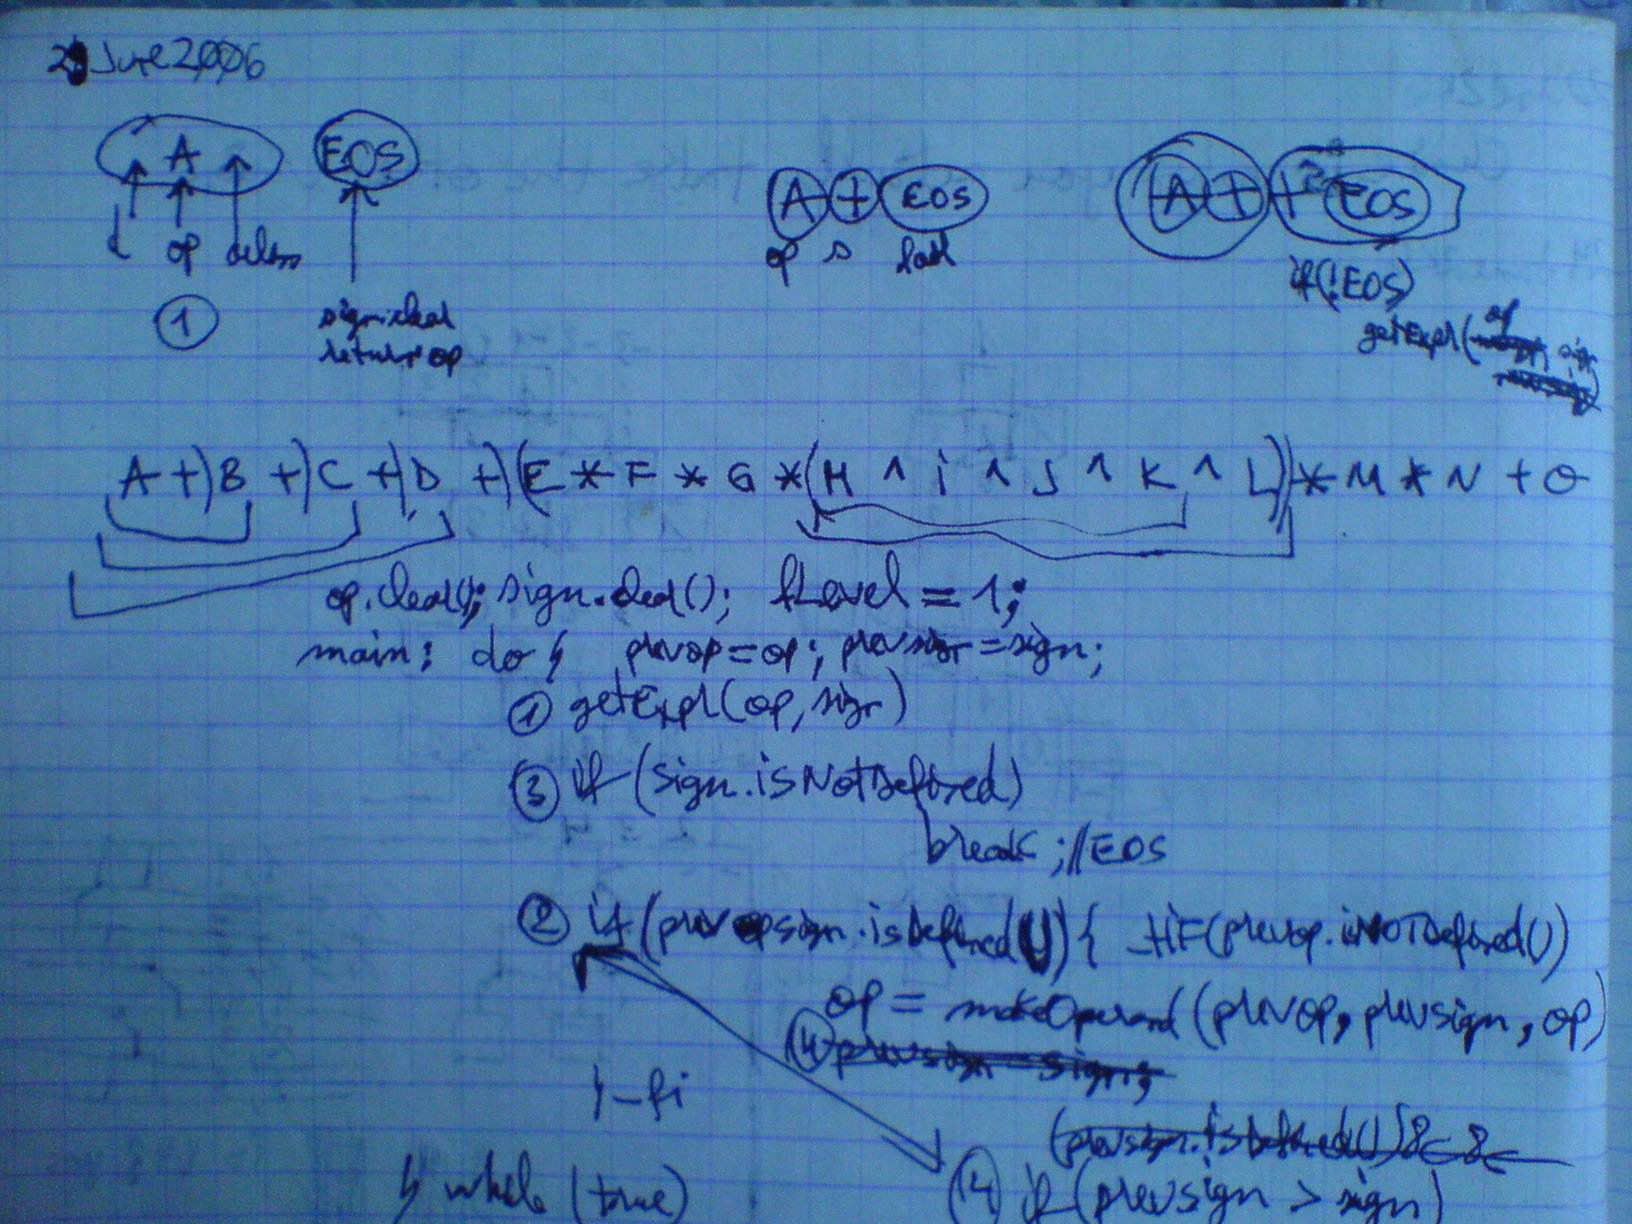 June 2006
A EOS
op
1
return op
A + EOS
op s
A + + EOS
if(!EOS)
getExpr(op sign
A +) B +) C +) D +) (E * F * G * (H ^ i ^ J ^ K ^ L)) * M * N + O
op.clear(); sign.clear(); fLevel = 1;
main: do { prevop = op; prevsign = sign;
1 getExpr(op, sign)
3 if (sign.isNotDefined)
break; //EOS
2 if (prevsign.isDefined()) { if(prevop.isNOTDefined())
op = makeOperand (prevop, prevsign, op)
4 prevsign = sign;
} - fi
(prevsign.isDefined()) &&
} while (true)
4 if (prevsign > sign)